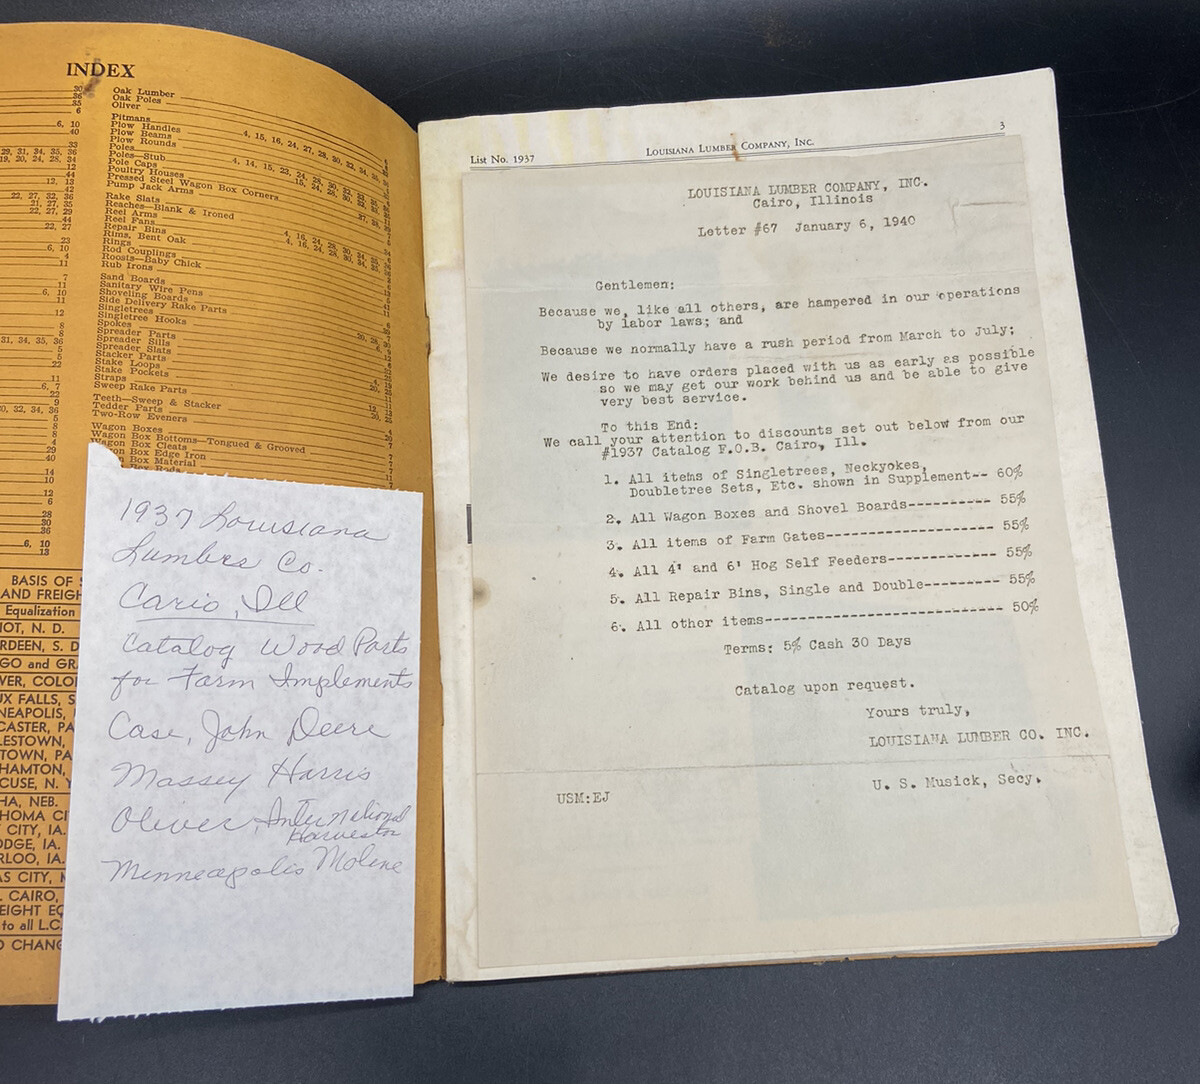 INDEX
30
36
35
6
6, 10
40
33
29, 31, 34, 35, 36
19, 20, 24, 28, 34
12
44
12, 13
42
22, 27, 32, 36
21, 27, 35
22, 27, 29
44
22, 27
23
6, 10
4
11
7
11
6, 10
11
12
8
8
31, 34, 35, 36
5
5
22
11
6, 7
22
9
30, 32, 34, 36
5
8
8
4
29
40
14
10
12
6
28
30
36
6, 10
13
Oak Lumber
Oak Poles
Oliver
Pitmans
Plow Handles
Plow Beams
Plow Rounds
Poles
Poles—Stub
Pole Caps
Poultry Houses
Pressed Steel Wagon Box Corners
Pump Jack Arms
Rake Slats
Reaches—Blank & Ironed
Reel Arms
Reel Fans
Repair Bins
Rims, Bent Oak
Rings
Rod Couplings
Roosts—Baby Chick
Rub Irons
Sand Boards
Sanitary Wire Pens
Shoveling Boards
Side Delivery Rake Parts
Singletrees
Singletree Hooks
Spokes
Spreader Parts
Spreader Sills
Spreader Slats
Stacker Parts
Stake Loops
Stake Pockets
Straps
Sweep Rake Parts
Teeth—Sweep & Stacker
Tedder Parts
Two-Row Eveners
Wagon Boxes
Wagon Box Bottoms—Tongued & Grooved
Wagon Box Cleats
Wagon Box Edge Iron
Box Material
BASIS OF
AND FREIGH
Equalization
OT, N. D.
RDEEN, S. D
GO and GR
VER, COLO
UX FALLS, S
NEAPOLIS,
CASTER, PA
LESTOWN,
TOWN, PA
HAMTON,
CUSE, N. Y
HA, NEB.
HOMA CI
CITY, IA.
ODGE, IA.
RLOO, IA.
AS CITY, M
CAIRO,
EIGHT EQ
to all L.C.
O CHANG
1937 Louisiana
Lumber Co.
Cario, Ill
Catalog Wood Parts
for Farm Implements
Case, John Deere
Massey Harris
Oliver, International
Harvestor
Minneapolis Moline
List No. 1937 LOUISIANA LUMBER COMPANY, INC. 3
LOUISIANA LUMBER COMPANY, INC.
Cairo, Illinois
Letter #67 January 6, 1940
Gentlemen:
Because we, like all others, are hampered in our operations
by labor laws; and
Because we normally have a rush period from March to July;
We desire to have orders placed with us as early as possible
so we may get our work behind us and be able to give
very best service.
To this End:
We call your attention to discounts set out below from our
#1937 Catalog F.O.B. Cairo, Ill.
1. All items of Singletrees, Neckyokes,
Doubletree Sets, Etc. shown in Supplement-- 60%
2. All Wagon Boxes and Shovel Boards---------- 55%
3. All items of Farm Gates-------------------- 55%
4. All 4' and 6' Hog Self Feeders------------- 55%
5. All Repair Bins, Single and Double--------- 55%
6. All other items---------------------------- 50%
Terms: 5% Cash 30 Days
Catalog upon request.
Yours truly,
LOUISIANA LUMBER CO. INC.
U. S. Musick, Secy.
USM:EJ